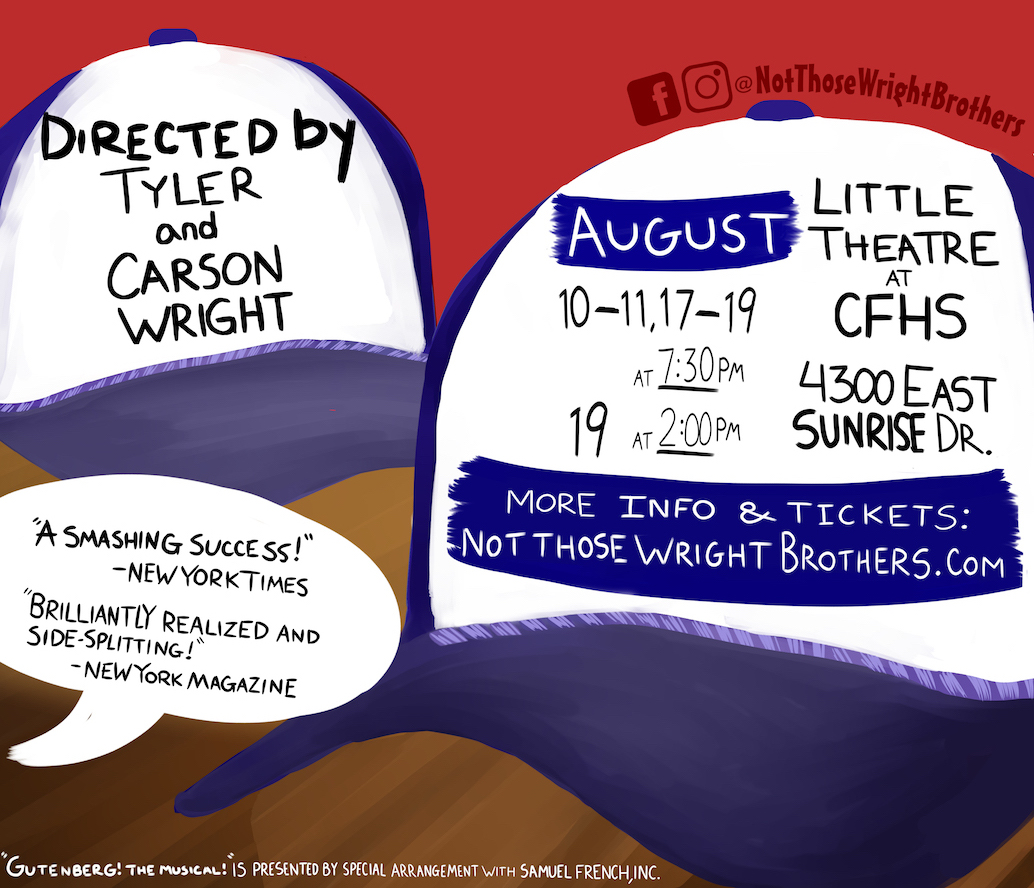 DIRECTED by
TYLER
and
CARSON
WRIGHT
f @NotThoseWrightBrothers
AUGUST
10-11,17-19
AT 7:30 PM
19 AT 2:00 PM
LITTLE
THEATRE
AT
CFHS
4300 EAST
SUNRISE DR.
MORE INFO & TICKETS:
NOT THOSE WRIGHT BROTHERS.COM
"A SMASHING SUCCESS!"
-NEW YORK TIMES
"BRILLIANTLY REALIZED AND
SIDE-SPLITTING!"
-NEW YORK MAGAZINE
"GUTENBERG! THE MUSICAL!" IS PRESENTED BY SPECIAL ARRANGEMENT WITH SAMUEL FRENCH, INC.